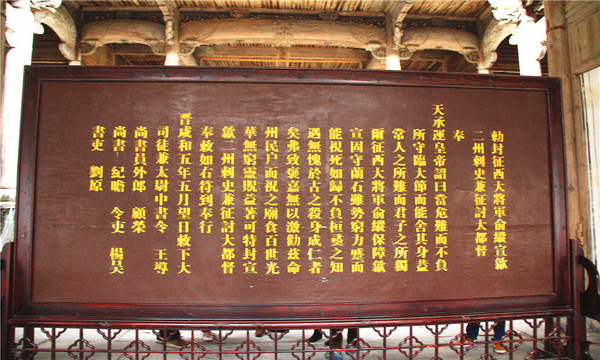 勅封征西大將軍俞縱宣歙
二州刺史兼征討大都督
奉
天承運皇帝詔曰當危難而不負
所守臨大節而能舍其身蓋
常人之所難而君子之所獨
爾征西大將軍俞縱保障歙
宣固守蘭石雖勢窮力躄而
能視死如歸不負桓彝之知
遇無愧於古之殺身成仁者
矣弗致褒嘉無以激勸茲命
州民戶而祝之廟食百世光
華無窮靈貺益著可特封宣
歙二州刺史兼征討大都督
奉敕如右符到奉行
晉咸和五年五月望日敕下大
司徒兼太尉中書令 王導
尚書員外郎 顧榮
尚書 紀瞻 令吏 楊昊
書吏 劉原